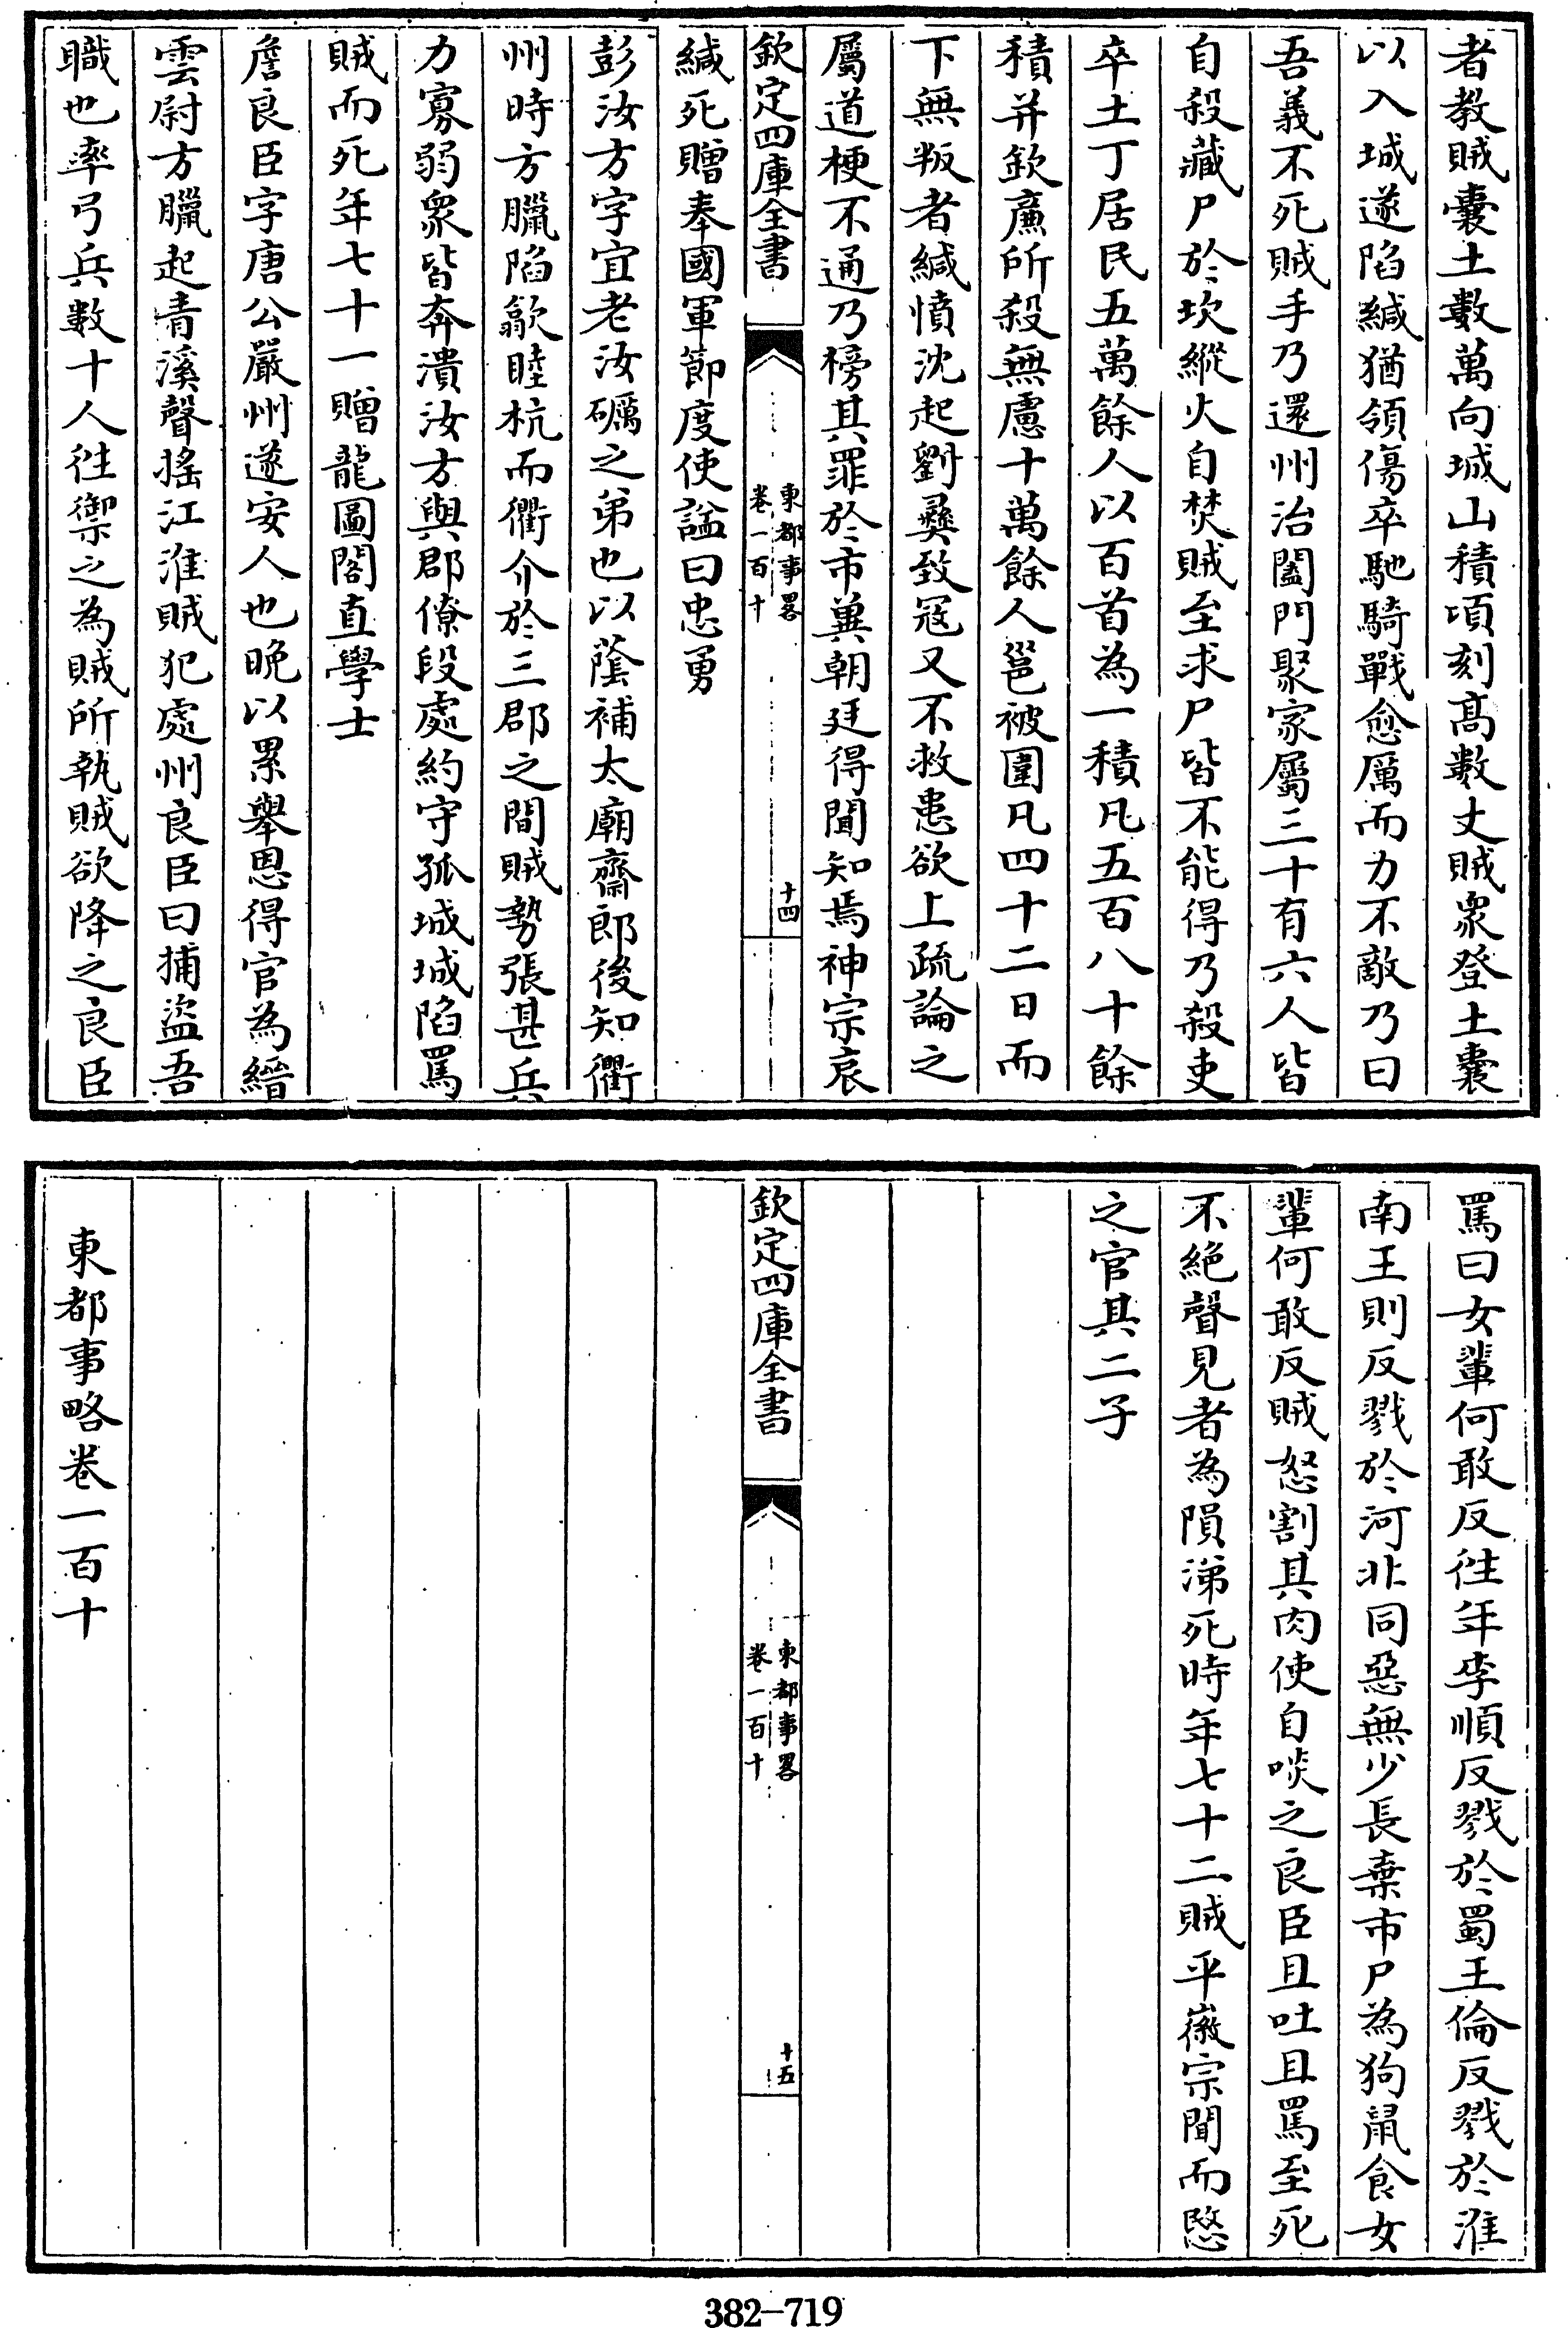 者教賊囊土數萬向城山積頃刻高數丈賊衆登土囊
以入城遂陷緘猶領傷卒馳騎戰愈厲而力不敵乃曰
吾義不死賊手乃還州治闔門聚家屬三十有六人皆
自殺藏尸於坎縱火自焚賊至求尸皆不能得乃殺吏
卒土丁居民五萬餘人以百首為一積凡五百八十餘
積并欽廉所殺無慮十萬餘人邕被圍凡四十二日而
下無叛者緘憤沈起劉彝致冦又不救患欲上疏論之
屬道梗不通乃榜其罪於市冀朝廷得聞知焉神宗哀
欽定四庫全書
東都事畧
卷一百十
十四
緘死贈奉國軍節度使諡曰忠勇
彭汝方字宜老汝礪之弟也以蔭補太廟齋郎後知衢
州時方臘陷歙睦杭而衢介於三郡之間賊勢張甚兵
力寡弱衆皆奔潰汝方與郡僚段處約守孤城城陷罵
賊而死年七十一贈龍圖閣直學士
詹良臣字唐公嚴州遂安人也晚以累舉恩得官為縉
雲尉方臘起青溪聲搖江淮賊犯處州良臣曰捕盜吾
職也率弓兵數十人往禦之為賊所執賊欲降之良臣
罵曰女輩何敢反往年李順反戮於蜀王倫反戮於淮
南王則反戮於河北同惡無少長棄市尸為狗鼠食女
輩何敢反賊怒割其肉使自啖之良臣且吐且罵至死
不絕聲見者為隕涕死時年七十二賊平徽宗聞而愍
之官其二子
欽定四庫全書
東都事畧
卷一百十
十五
東都事略卷一百十
382-719